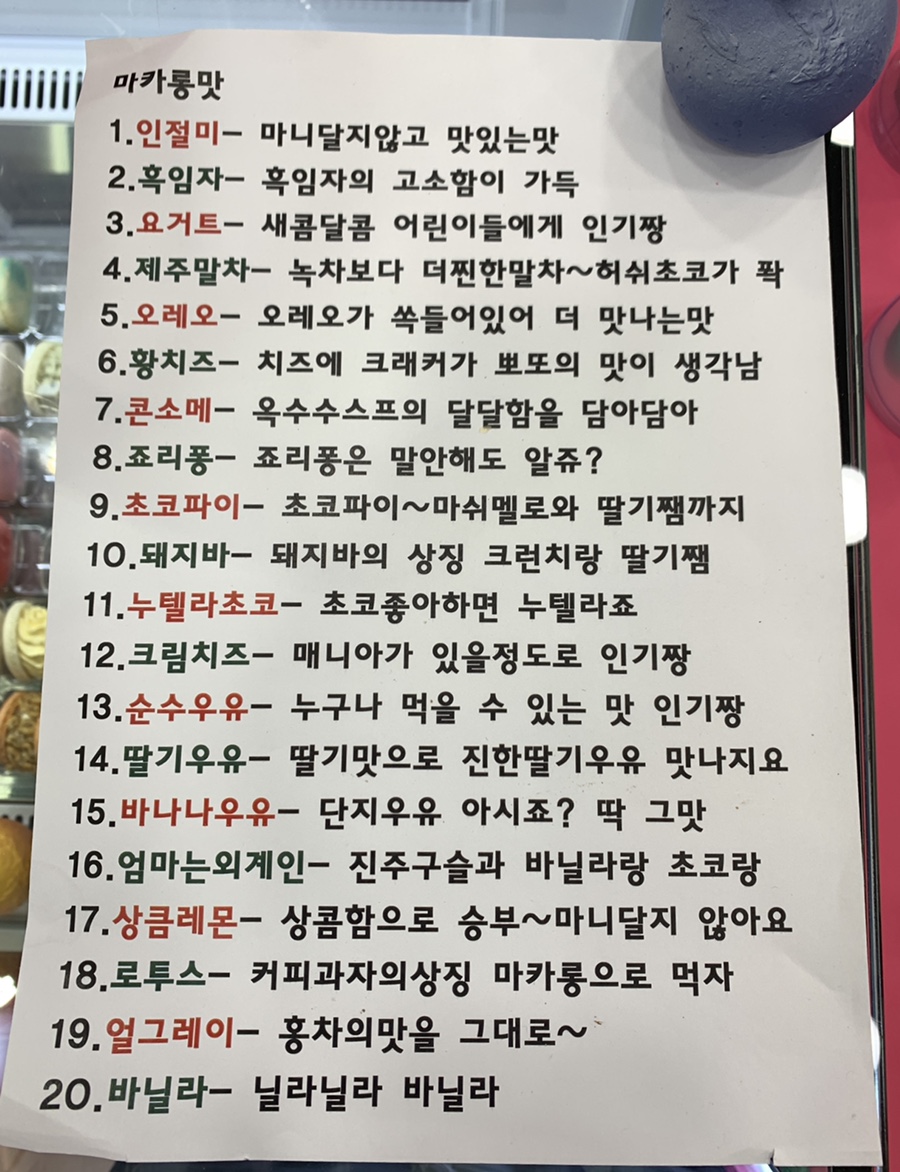 마카롱맛
1.인절미- 마니달지않고 맛있는맛
2.흑임자- 흑임자의 고소함이 가득
3.요거트- 새콤달콤 어린이들에게 인기짱
4.제주말차- 녹차보다 더찐한말차~허쉬초코가 퐉
5.오레오- 오레오가 쏙들어있어 더 맛나는맛
6.황치즈- 치즈에 크래커가 뽀또의 맛이 생각남
7.콘소메- 옥수수스프의 달달함을 담아담아
8.죠리퐁- 죠리퐁은 말안해도 알쥬?
9.초코파이- 초코파이~마쉬멜로와 딸기쨈까지
10.돼지바- 돼지바의 상징 크런치랑 딸기쨈
11.누텔라초코- 초코좋아하면 누텔라죠
12.크림치즈- 매니아가 있을정도로 인기짱
13.순수우유- 누구나 먹을 수 있는 맛 인기짱
14.딸기우유- 딸기맛으로 진한딸기우유 맛나지요
15.바나나우유- 단지우유 아시죠? 딱 그맛
16.엄마는외계인- 진주구슬과 바닐라랑 초코랑
17.상큼레몬- 상콤함으로 승부~마니달지 않아요
18.로투스- 커피과자의상징 마카롱으로 먹자
19.얼그레이- 홍차의맛을 그대로~
20.바닐라- 닐라닐라 바닐라